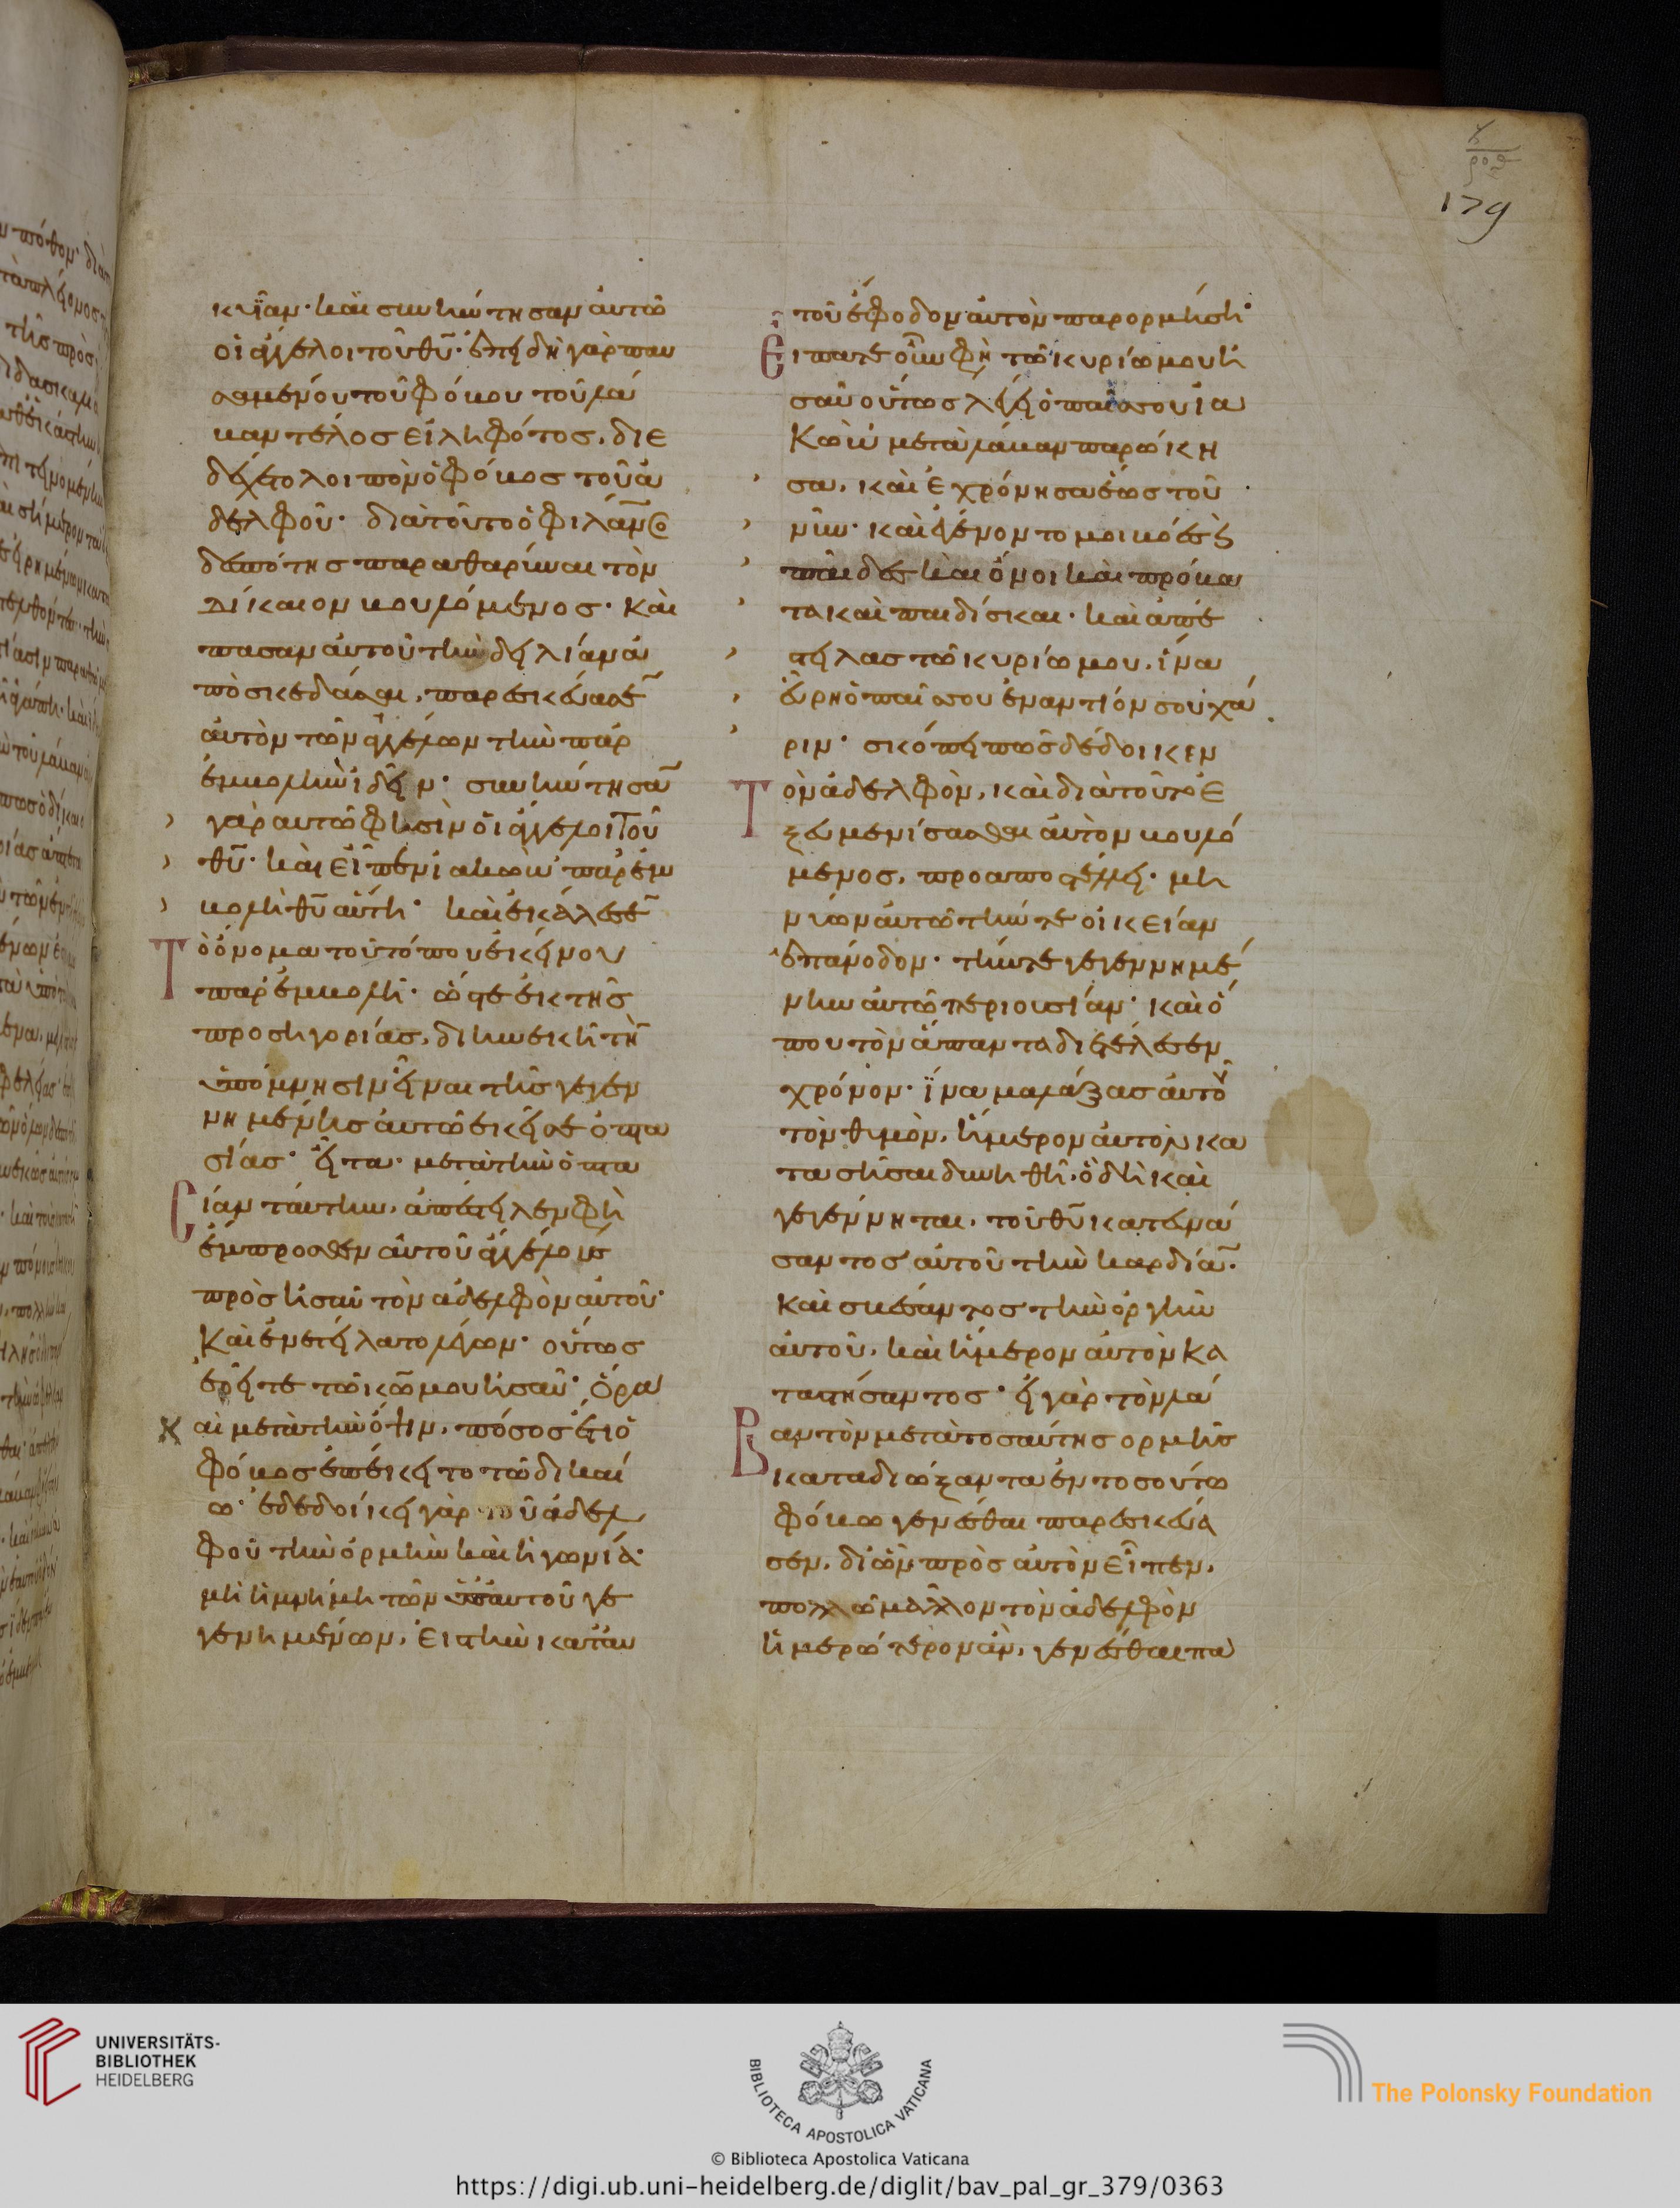 κυΐαν· καὶ συνήντησαν αὐτῶ
οἱ ἄγγελοι τοῦ θῡ· ἐπειδὴ γὰρ παυ
σαμένου τοῦ φόβου τοῦ λά
βαν τέλος εἰληφότος, διε
δέχετο λοιπὸν ὁ φόβος τοῦ ἀ
δελφοῦ· διὰ τοῦτο ὁ φιλᾱνος
δεσπότης παραθαρύναι τὸν
Δίκαιον βουλόμενος· καὶ
πᾶσαν αὐτοῦ τὴν δειλίαν ἀ
ποσκεδάσαι, παρεσκεύασε̄
αὐτὸν τῶν ἀγγέλων τὴν παρ
εμβολὴν ἰδεῖν· συνήντησᾱ
γὰρ αὐτῶ φησὶν οἱ ἄγγελοι τοῦ
θῡ· καὶ εἶπεν ἰακὼβ παρεμ
βολὴ θῡ αὕτη· καὶ ἐκάλεσε̄
Τὸ ὄνομα τοῦ τόπου ἐκείνου
παρεμβολή· ὥστε ἐκ τῆς
προσηγορίας, διηνεκῆ τὴ̄
ὑπόμνησιν εἶναι τῆς γεγεν
νημένης αὐτῶ ἐκεῖσε ὀπτα
σίας· εἶτα μετὰ τὴν ὀπτα
Σίαν ταύτην, ἀπέστειλεν φη
ἔμπροσθεν αὐτοῦ ἀγγέλους
πρὸς ἠσαῦ τὸν ἀδελφὸν αὐτοῦ·
Καὶ ἐνετείλατο λέγων· οὕτως
ἐρεῖτε τῶ κω̄ μου ἠσαῦ· ὅρα
Καὶ μετὰ τὴν ὄψιν, πόσος ἔτι ὁ
φόβος ἐπέκειτο τῶ δικαί
ω· ἐδεδοίκει γὰρ τοῦ ἀδελ
φοῦ τὴν ὁρμὴν καὶ ἠγωνία·
μὴ ἡ μνήμη τῶν ὑπ' αὐτοῦ γε
γενημένων, εἰς τὴν κατ' αὐ
179
τοῦ ἔφοδον αὐτὸν παρορμήση·
Εἴπατε οὖν φη τῶ κυρίω μου ἠ
σαῦ οὕτως λέγει ὁ παῖς σου ἰα
Κώβ μετὰ λάβαν παρώκη
σα, καὶ ἐχρόνησα ἕως τοῦ
νῦν· καὶ ἐγένοντο μοι βόες
παῖδες καὶ ὄνοι καὶ πρόβα
τα καὶ παιδίσκαι· καὶ ἀπέ
στειλας τῶ κυρίω μου, ἵνα
εὕρη ὁ παῖς σου ἐναντίον σου χά
ριν· σκόπει πῶς δέδοικεν
Τὸν ἀδελφὸν, καὶ διὰ τοῦτο ἐ
ξευμενίσασθαι αὐτὸν βουλό
μενος, προαποστέλλει· μη
νύων αὐτῶ τήν τε οἰκείαν
ἐπάνοδον· τήν τε γεγεννημέ
νην αὐτῶ περιουσίαν· καὶ ὅ
που τὸν ἅπαντα διετέλεσεν
χρόνον· ἵνα μαλάξας αὐτοῦ
τὸν θυμὸν, ἥμερον αὐτὸν κα
ταστῆσαι δυνηθῆ· ὃ δὴ καὶ
γεγέννηται, τοῦ θῡ κατευνά
σαντος αὐτοῦ τὴν καρδίᾱ·
Καὶ σβέσαντος τὴν ὀργὴν
αὐτοῦ, καὶ ἥμερον αὐτὸν κα
ταστήσαντος· εἰ γὰρ τὸν λά
Βαν τὸν μετὰ τοσαύτης ὁρμῆς
καταδιώξαντα ἐν τοσούτω
φόβω γενέσθαι παρεσκεύα
σεν, δι' ὧν πρὸς αὐτὸν εἶπεν,
πολλῶ μᾶλλον τὸν ἀδελφὸν
ἡμερώτερον ἂν, γενέσθαι πα
UNIVERSITÄTS-
BIBLIOTHEK
HEIDELBERG
BIBLIOTECA APOSTOLICA VATICANA
The Polonsky Foundation
© Biblioteca Apostolica Vaticana
https://digi.ub.uni-heidelberg.de/diglit/bav_pal_gr_379/0363